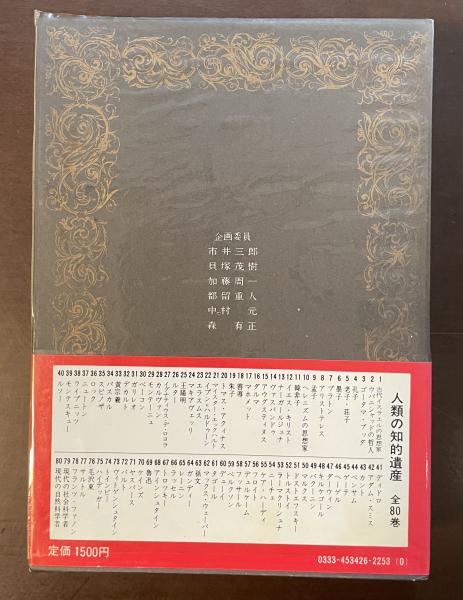 企画委員
市井三郎
貝塚茂樹
加藤周一
都留重人
中村 元
森 有正
人類の知的遺産 全80巻
1 古代イスラエルの思想家
2 ウパニシャッドの哲人
3 ゴータマ・ブッダ
4 孔子
5 老子・荘子
6 墨子
7 プラトン
8 アリストテレス
9 孟子
10 ヘレニズムの思想家
11 韓非子
12 イエス・キリスト
13 ナーガールジュナ
14 ヴァスバンドゥ
15 アウグスティヌス
16 ダルマ
17 マホメット
18 善導
19 朱子
20 トマス・アクィナス
21 マイスター・エックハルト
22 イブン=ハルドゥーン
23 エラスムス
24 マキアヴェッリ
25 王陽明
26 ルター
27 イグナティウス=デ=ロヨラ
28 カルヴァン
29 モンテーニュ
30 ベーコン
31 ガリレオ
32 デカルト
33 黄宗羲
34 パスカル
35 スピノザ
36 ロック
37 ニュートン
38 ライプニッツ
39 モンテスキュー
40 ルソー
41 ディドロ
42 アダム・スミス
43 カント
44 ベンサム
45 ゲーテ
46 ヘーゲル
47 ダーウィン
48 キルケゴール
49 バクーニン
50 マルクス
51 ドストエフスキー
52 トルストイ
53 ラーマクリシュナ
54 ニーチェ
55 ケアリ・ハーディ
56 フロイト
57 デュルケーム
58 フッサール
59 デューイ
60 ベルクソン
61 タゴール
62 マックス・ウェーバー
63 孫文
64 ガンディー
65 レーニン
66 ラッセル
67 トロツキー
68 アインシュタイン
69 魯迅
70 ケインズ
71 ヤスパース
72 バルト
73 ウィトゲンシュタイン
74 トインビー
75 ハイデッガー
76 毛沢東
77 サルトル
78 フランツ・ファノン
79 現代の社会科学者
80 現代の自然科学者
定価 1500円
0333-453426-2253 (0)